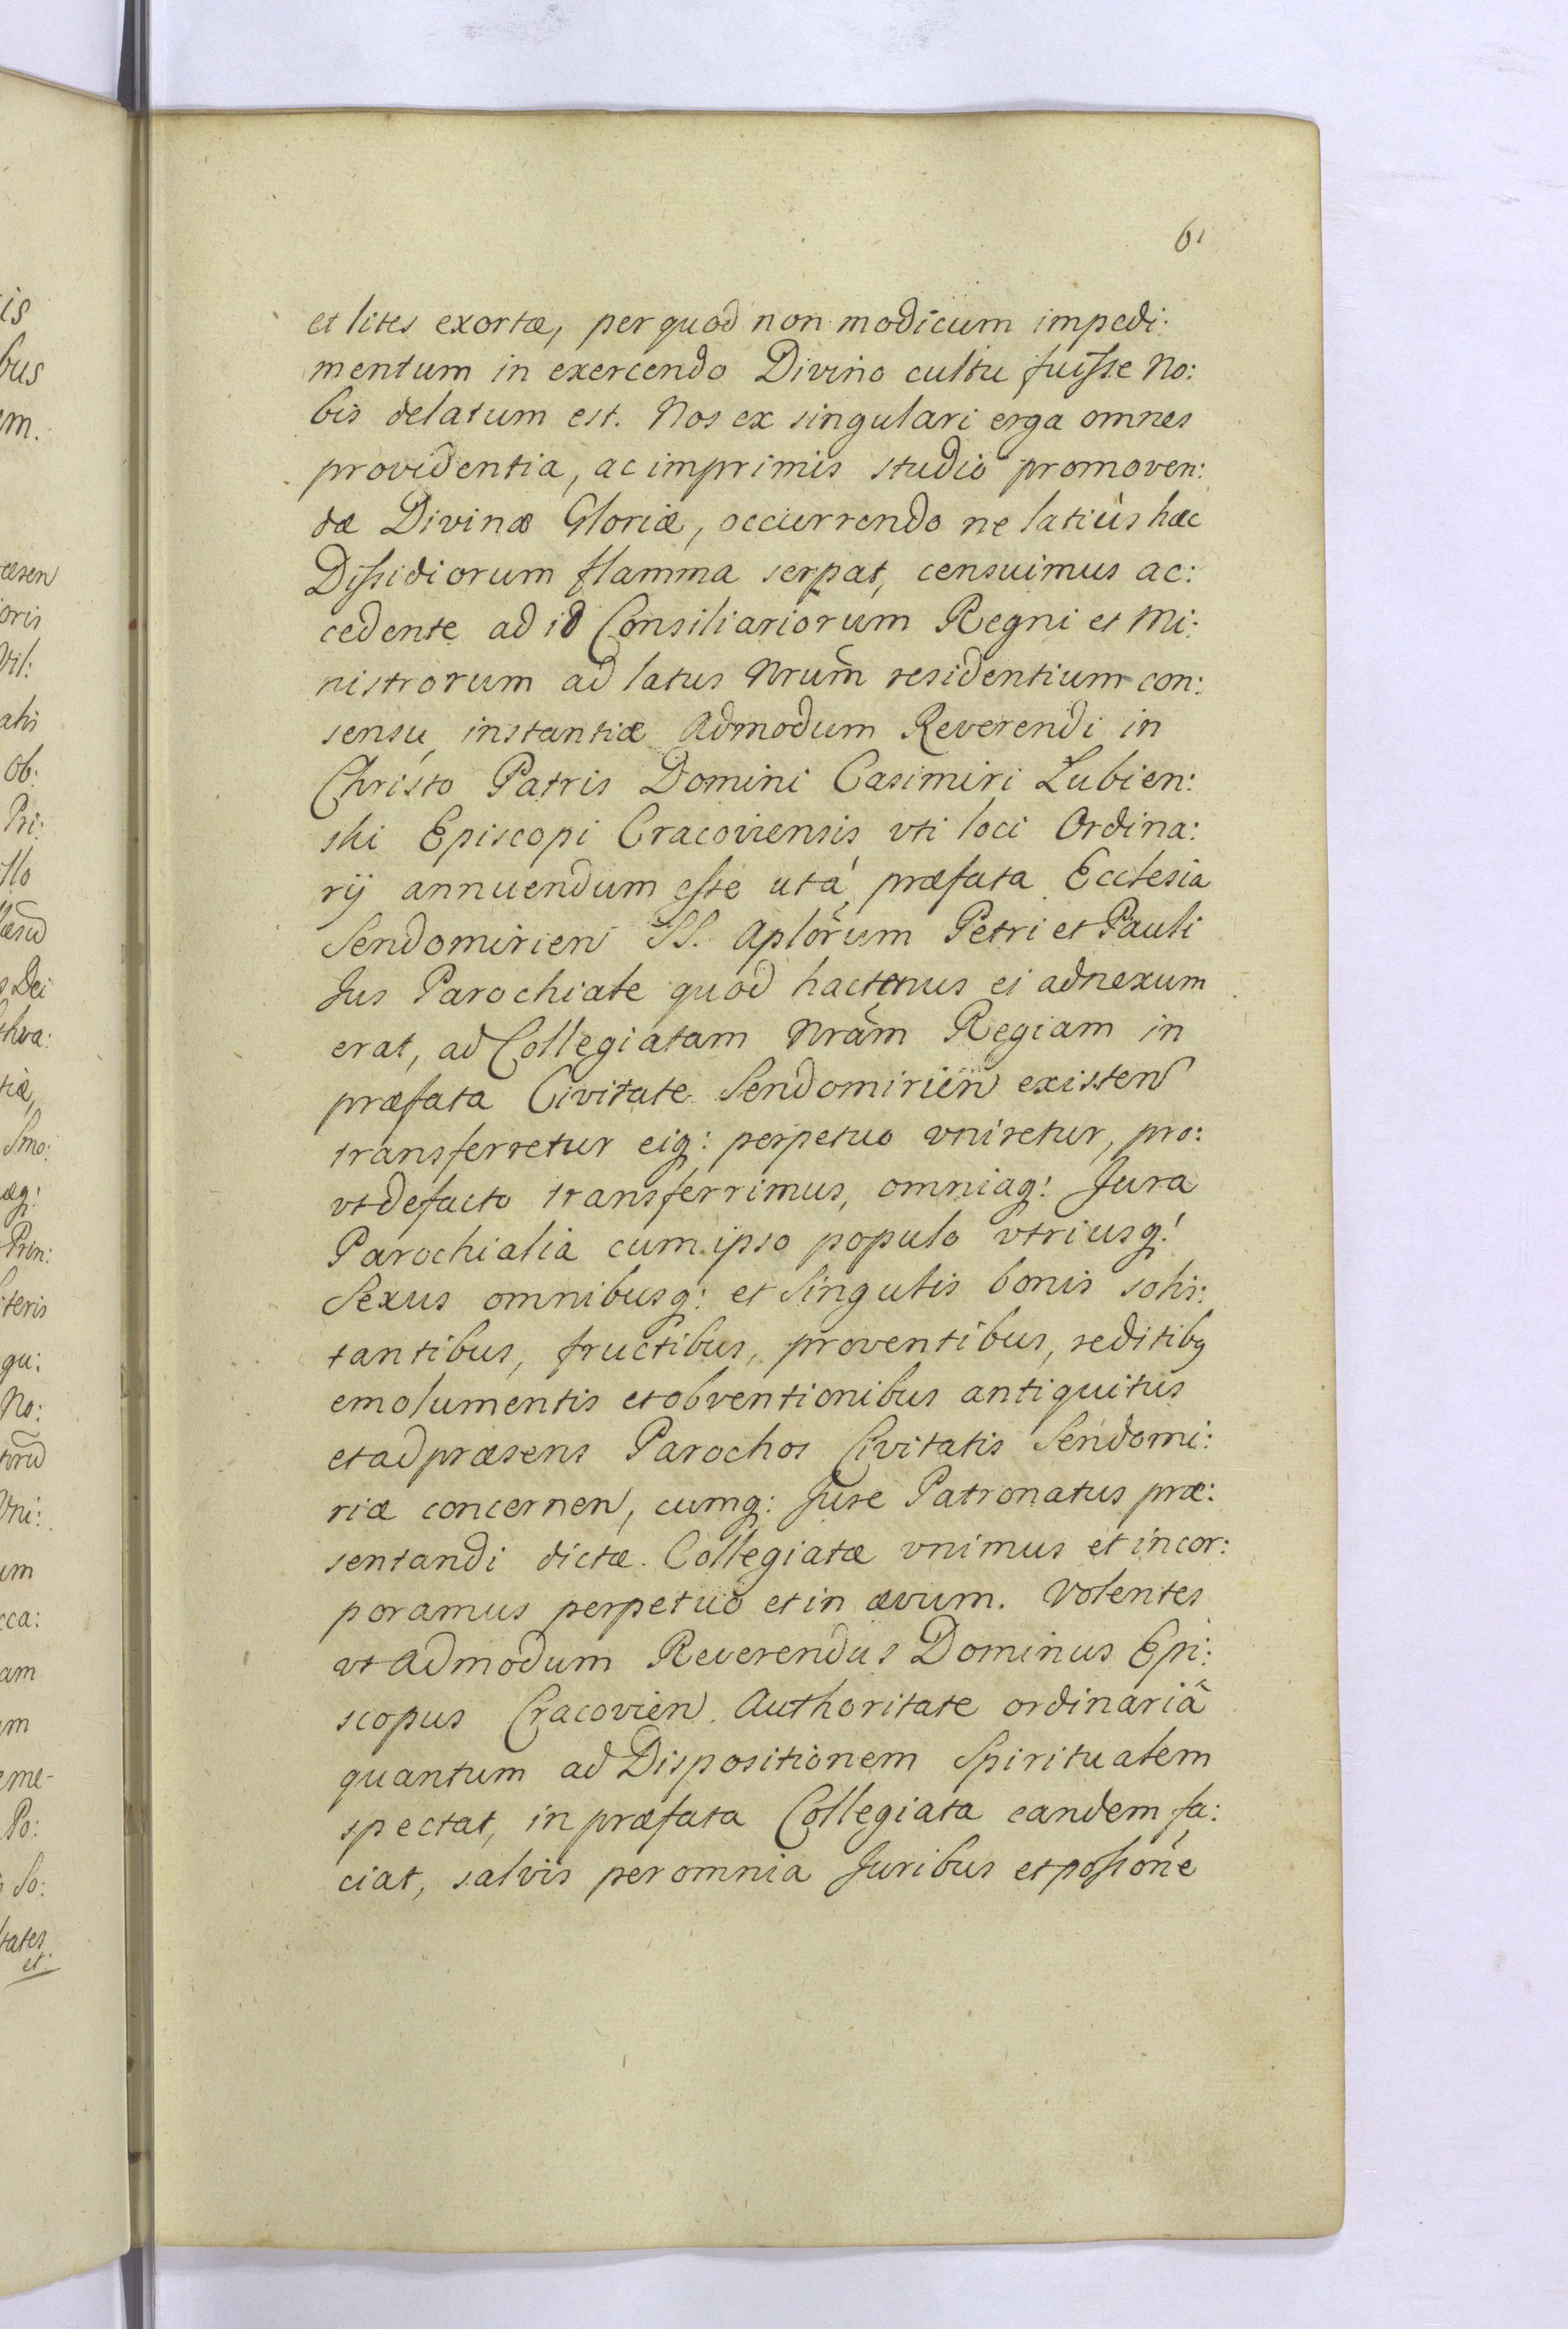 61
et lites exortæ, per quod non modicum impedi:
mentum in exercendo Divino cultu fuiſse No:
bis delatum est. Nos ex singulari erga omnes
providentia, ac imprimis studio promoven:
dæ Divinæ Gloriæ, occurrendo ne latiùs hæc
Diſsidiorum flamma serpat, censuimus ac:
cedente ad id Consiliariorum Regni et Mi:
nistrorum ad latus Nrum̃ residentium con:
sensu, instantiæ Admodum Reverendi in
Christo Patris Domini Casimiri Lubien:
ski Episcopi Cracoviensis vti loci Ordina:
rij annuendum eſse utá præfata Ecclesia
Sendomirien SS. Aplõrum Petri et Pauli
Jus Parochiale quod hactenus ei adnexum
erat, ad Collegiatam Nrãm Regiam in
præfata Civitate Sendomirien existen
transferretur eiq: perpetuo vniretur, pro:
vt de facto transferrimus, omniaq: Jura
Parochialia cum ipso populo vtriusq:
Sexus omnibusq: et Singulis bonis
tantibus, fructibus, proventibus, reditibq
emolumentis et obventionibus antiquitus
et ad præsens Parochos Civitatis Sendomi:
riæ concernen, cumq: Jure Patronatus præ:
sentandi dictæ Collegiatæ vnimus et incor:
poramus perpetuo et in ævum. Volentes
vt Admodum Reverendus Dominus Epi:
scopus Cracovien. Authoritate ordinariâ
quantum ad Dispositionem Spiritualem
spectat, in præfata Collegiata eandem fa:
ciat, salvis per omnia Juribus et poſsiõne
is
bus
em.
æsen
oris
Vil:
atis
Ob:
Pri:
illo
s Dei
tiæ,
Smo:
æq:
Prin:
iteris
qu:
No:
Vni:
um
cca:
am
em
eme-
Po:
So:
tates
et